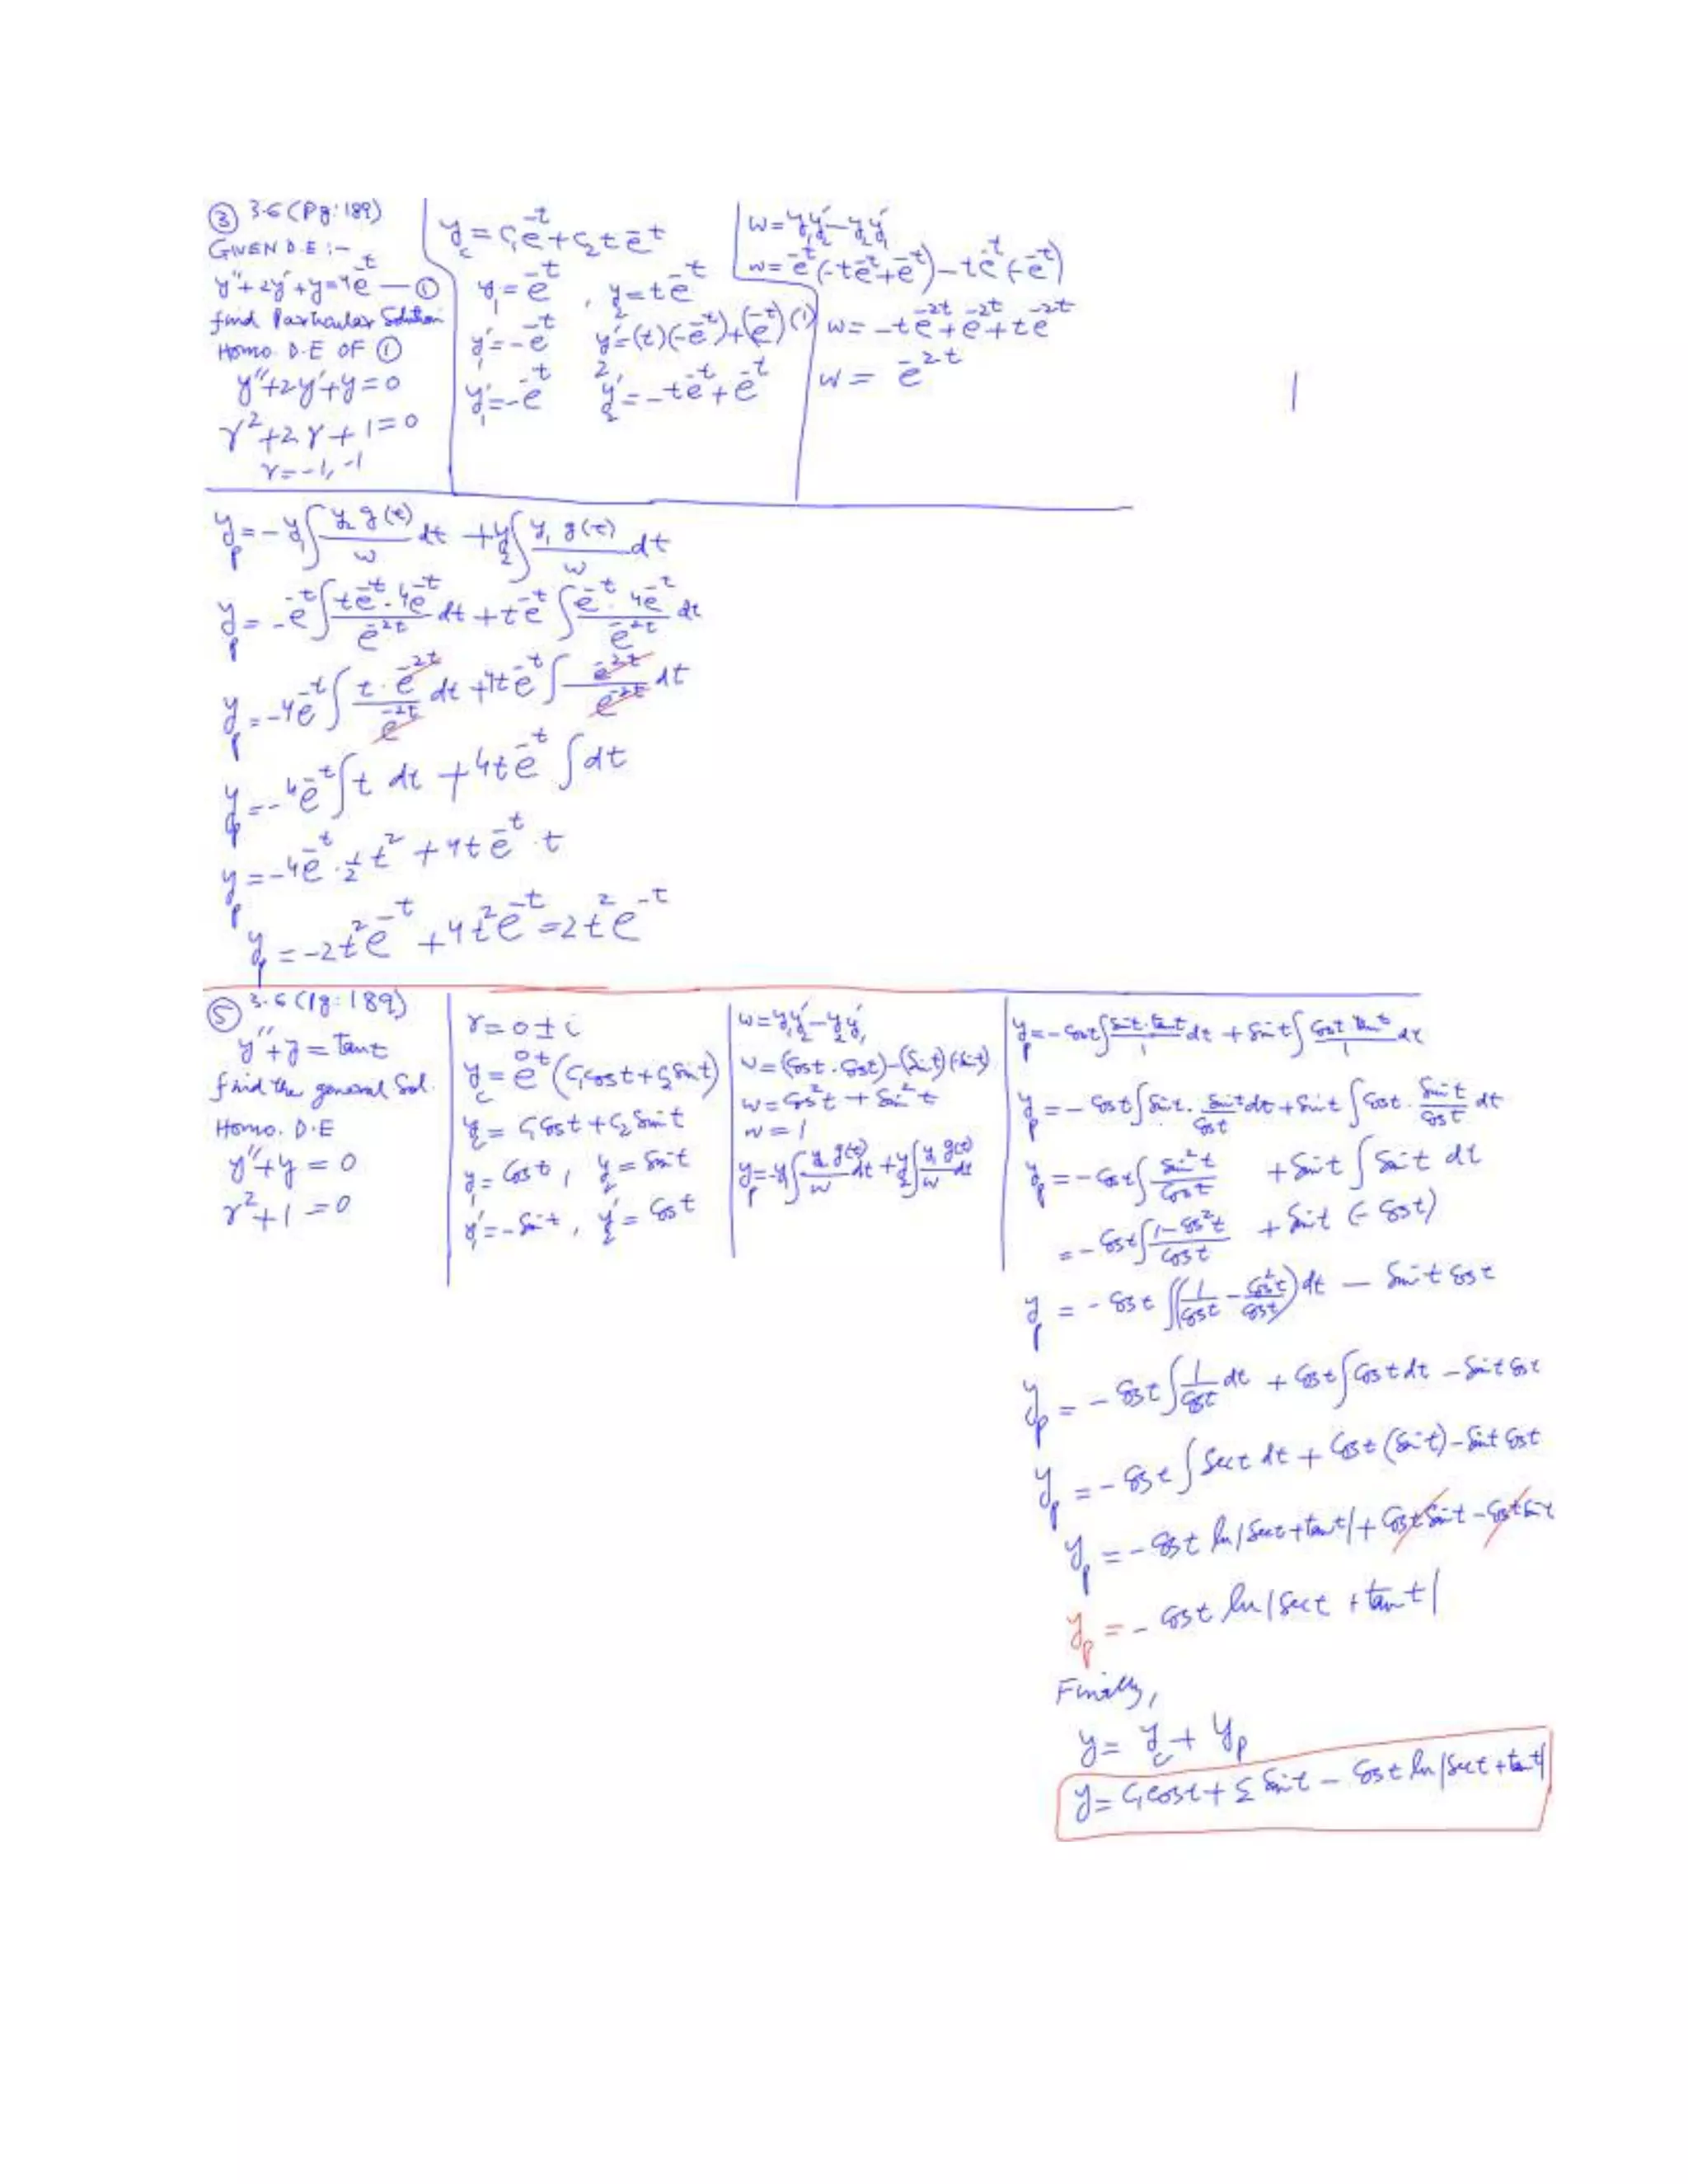 ③ 3.6 (Pg: 189)
GIVEN D.E :-
y'' + 2y' + y = 4e^{-t} — ①
find Particular Solution
Homo. D.E OF ①
y'' + 2y' + y = 0
r² + 2r + 1 = 0
r = -1, -1
y_c = c₁e^{-t} + c₂te^{-t}
y₁ = e^{-t} , y₂ = te^{-t}
y₁' = -e^{-t} y₂' = (t)(-e^{-t}) + (e^{-t})(1)
y₁' = -e^{-t} y₂' = -te^{-t} + e^{-t}
w = y₁y₂' - y₂y₁'
w = e^{-t}(-te^{-t} + e^{-t}) - te^{-t}(-e^{-t})
w = -te^{-2t} + e^{-2t} + te^{-2t}
w = e^{-2t}
y_p = -y₁∫ y₂ g(t)/w dt + y₂∫ y₁ g(t)/w dt
y_p = -e^{-t}∫ te^{-t}·4e^{-t}/e^{-2t} dt + te^{-t}∫ e^{-t}·4e^{-t}/e^{-2t} dt
y_p = -4e^{-t}∫ t·e^{-2t}/e^{-2t} dt + 4te^{-t}∫ e^{-2t}/e^{-2t} dt
y_p = -4e^{-t}∫t dt + 4te^{-t}∫dt
y_p = -4e^{-t}·½t² + 4te^{-t}·t
y_p = -2t²e^{-t} + 4t²e^{-t} = 2t²e^{-t}
⑤ 3.6 (Pg: 189)
y'' + y = tan t
find the general Sol.
Homo. D.E
y'' + y = 0
r² + 1 = 0
r = 0 ± i
y_c = e^{0t}(c₁cos t + c₂ Sin t)
y_c = c₁Cos t + c₂ Sin t
y₁ = Cos t , y₂ = Sin t
y₁' = -Sin t , y₂' = Cos t
w = y₁y₂' - y₂y₁'
w = (Cos t · Cos t) - (Sin t)(-Sin t)
w = Cos²t + Sin²t
w = 1
y_p = -y₁∫ y₂ g(t)/w dt + y₂∫ y₁ g(t)/w dt
y_p = -Cos t∫ Sin t·tan t/1 dt + Sin t∫ Cos t·tan t/1 dt
y_p = -Cos t∫Sin t · Sin t/Cos t dt + Sin t∫Cos t · Sin t/Cos t dt
y_p = -Cos t∫ Sin²t/Cos t + Sin t∫ Sin t dt
= -Cos t∫ 1-Cos²t/Cos t + Sin t (-Cos t)
y_p = -Cos t∫(1/Cos t - Cos²t/Cos t) dt - Sin t Cos t
y_p = -Cos t∫ 1/Cos t dt + Cos t∫Cos t dt - Sin t Cos t
y_p = -Cos t∫Sec t dt + Cos t (Sin t) - Sin t Cos t
y_p = -Cos t ln|Sec t + tan t| + Cos t Sin t - Cos t Sin t
y_p = -Cos t ln|Sec t + tan t|
Finally,
y = y_c + y_p
y = c₁cos t + c₂ Sin t - Cos t ln|Sec t + tan t|